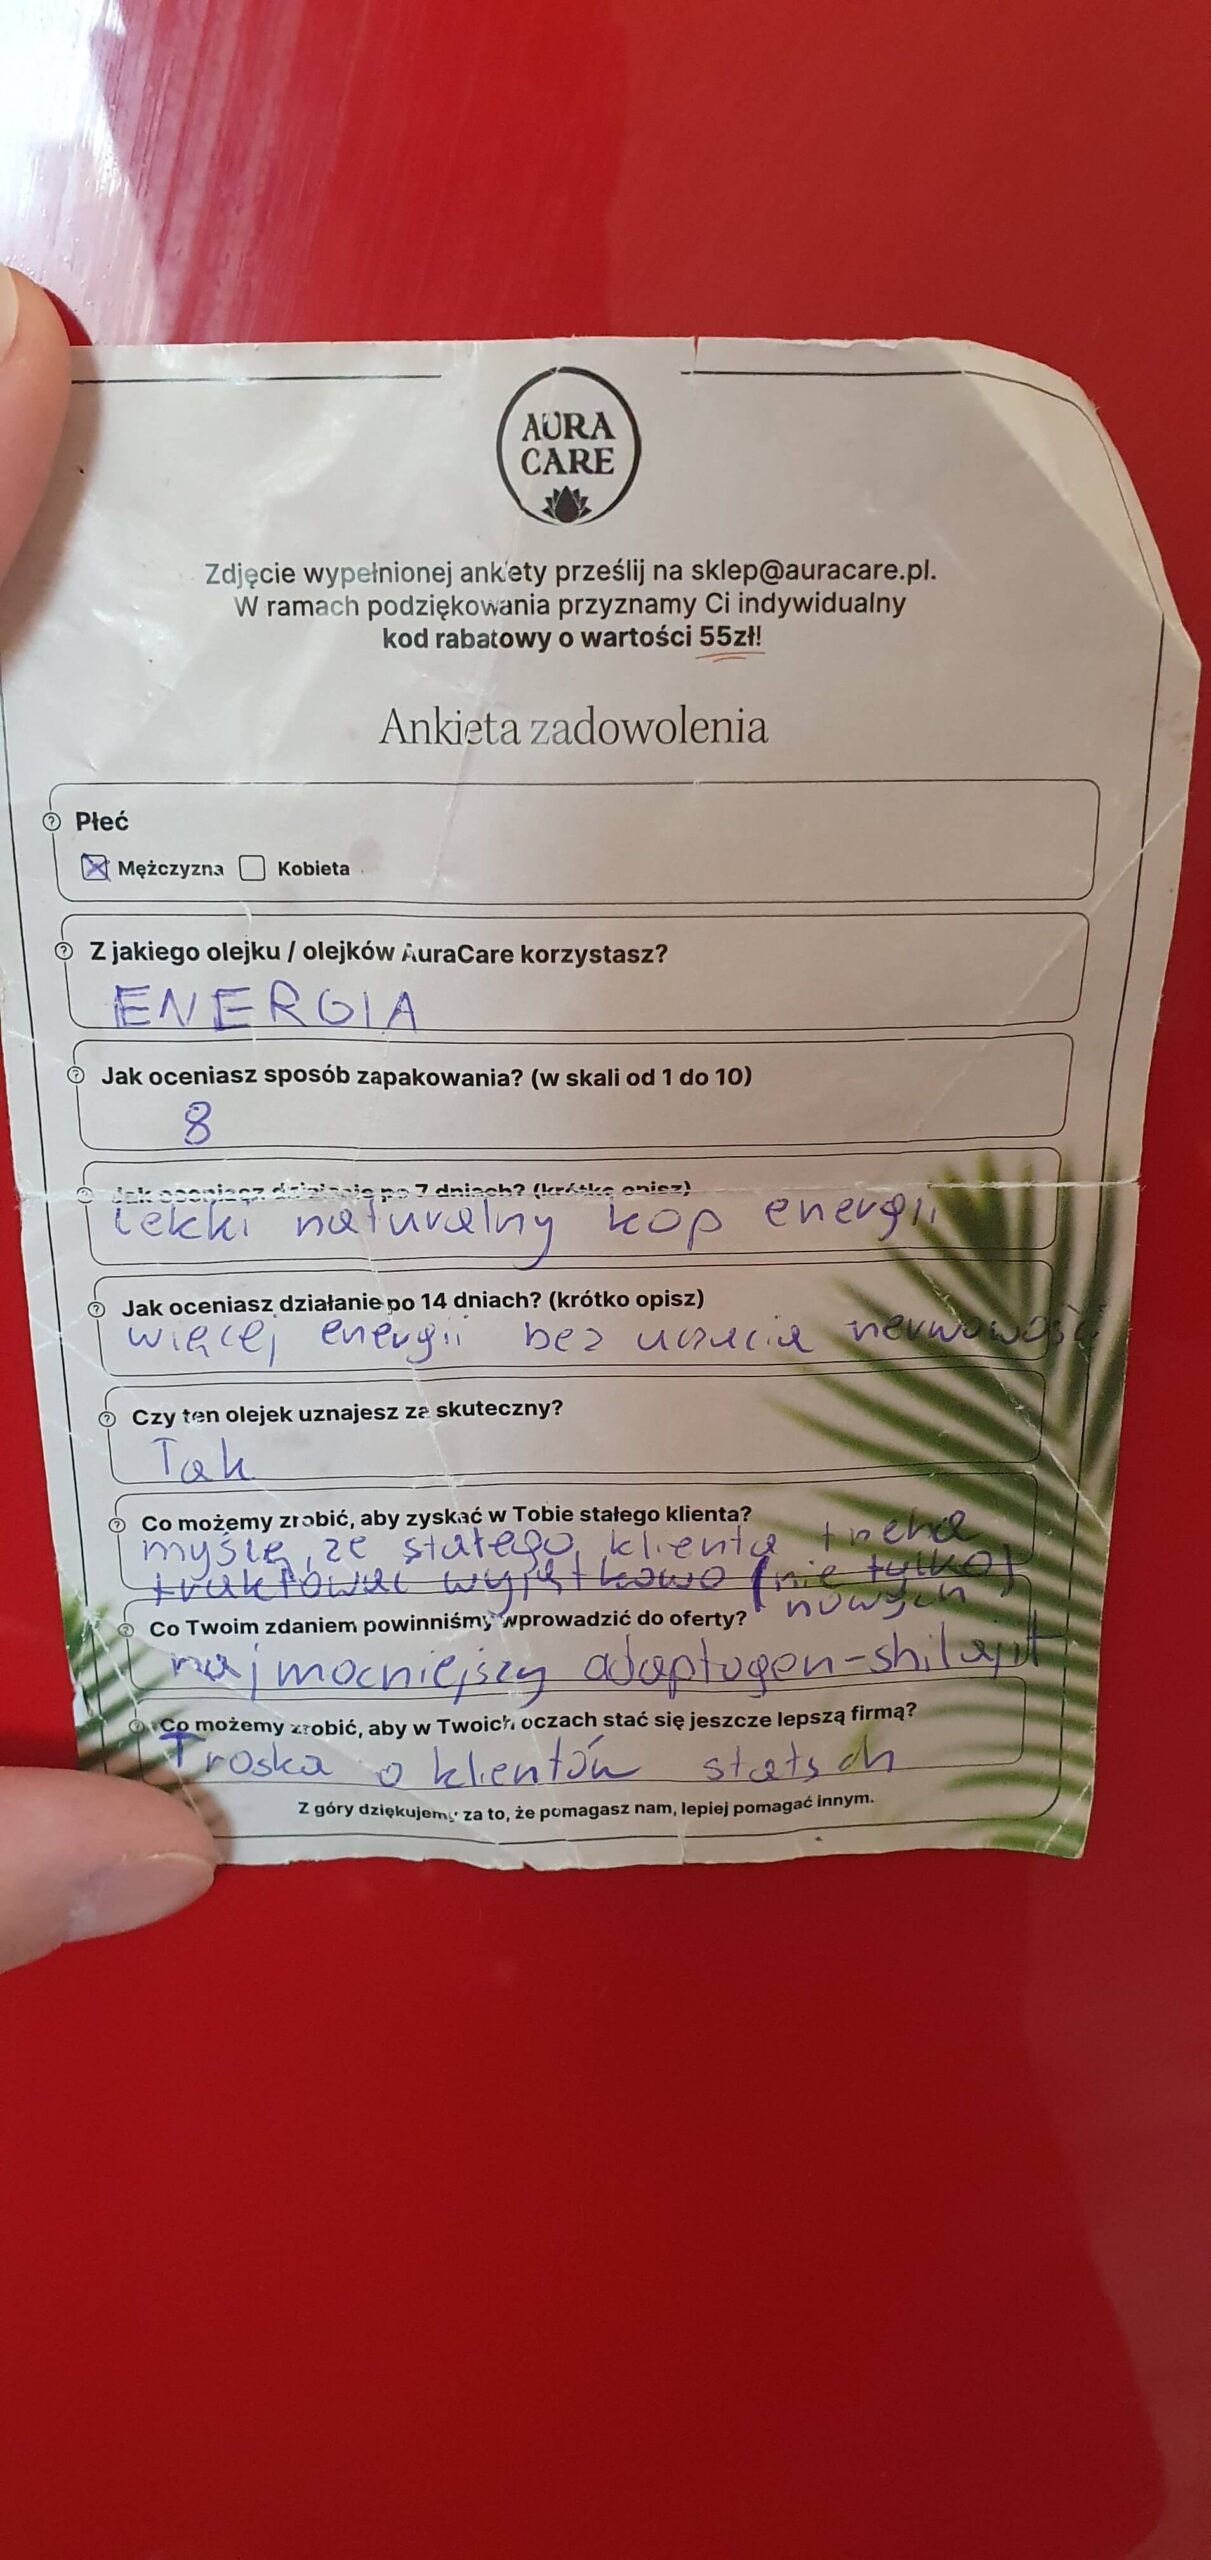 AURA
CARE
Zdjęcie wypełnionej ankiety prześlij na sklep@auracare.pl.
W ramach podziękowania przyznamy Ci indywidualny
kod rabatowy o wartości 55zł!
Ankieta zadowolenia
Płeć
Mężczyzna Kobieta
Z jakiego olejku / olejków AuraCare korzystasz?
ENERGIA
Jak oceniasz sposób zapakowania? (w skali od 1 do 10)
8
Jak oceniasz działanie po 7 dniach? (krótko opisz)
lekki naturalny kop energii
Jak oceniasz działanie po 14 dniach? (krótko opisz)
więcej energii bez uczucia nerwowość
Czy ten olejek uznajesz za skuteczny?
Tak
Co możemy zrobić, aby zyskać w Tobie stałego klienta?
myślę, że stałego klienta trzeba
traktować wyjątkowo (nie tylko)
nowych
Co Twoim zdaniem powinniśmy wprowadzić do oferty?
najmocniejszy adaptogen-shilajit
Co możemy zrobić, aby w Twoich oczach stać się jeszcze lepszą firmą?
Troska o klientów stałych
Z góry dziękujemy za to, że pomagasz nam, lepiej pomagać innym.